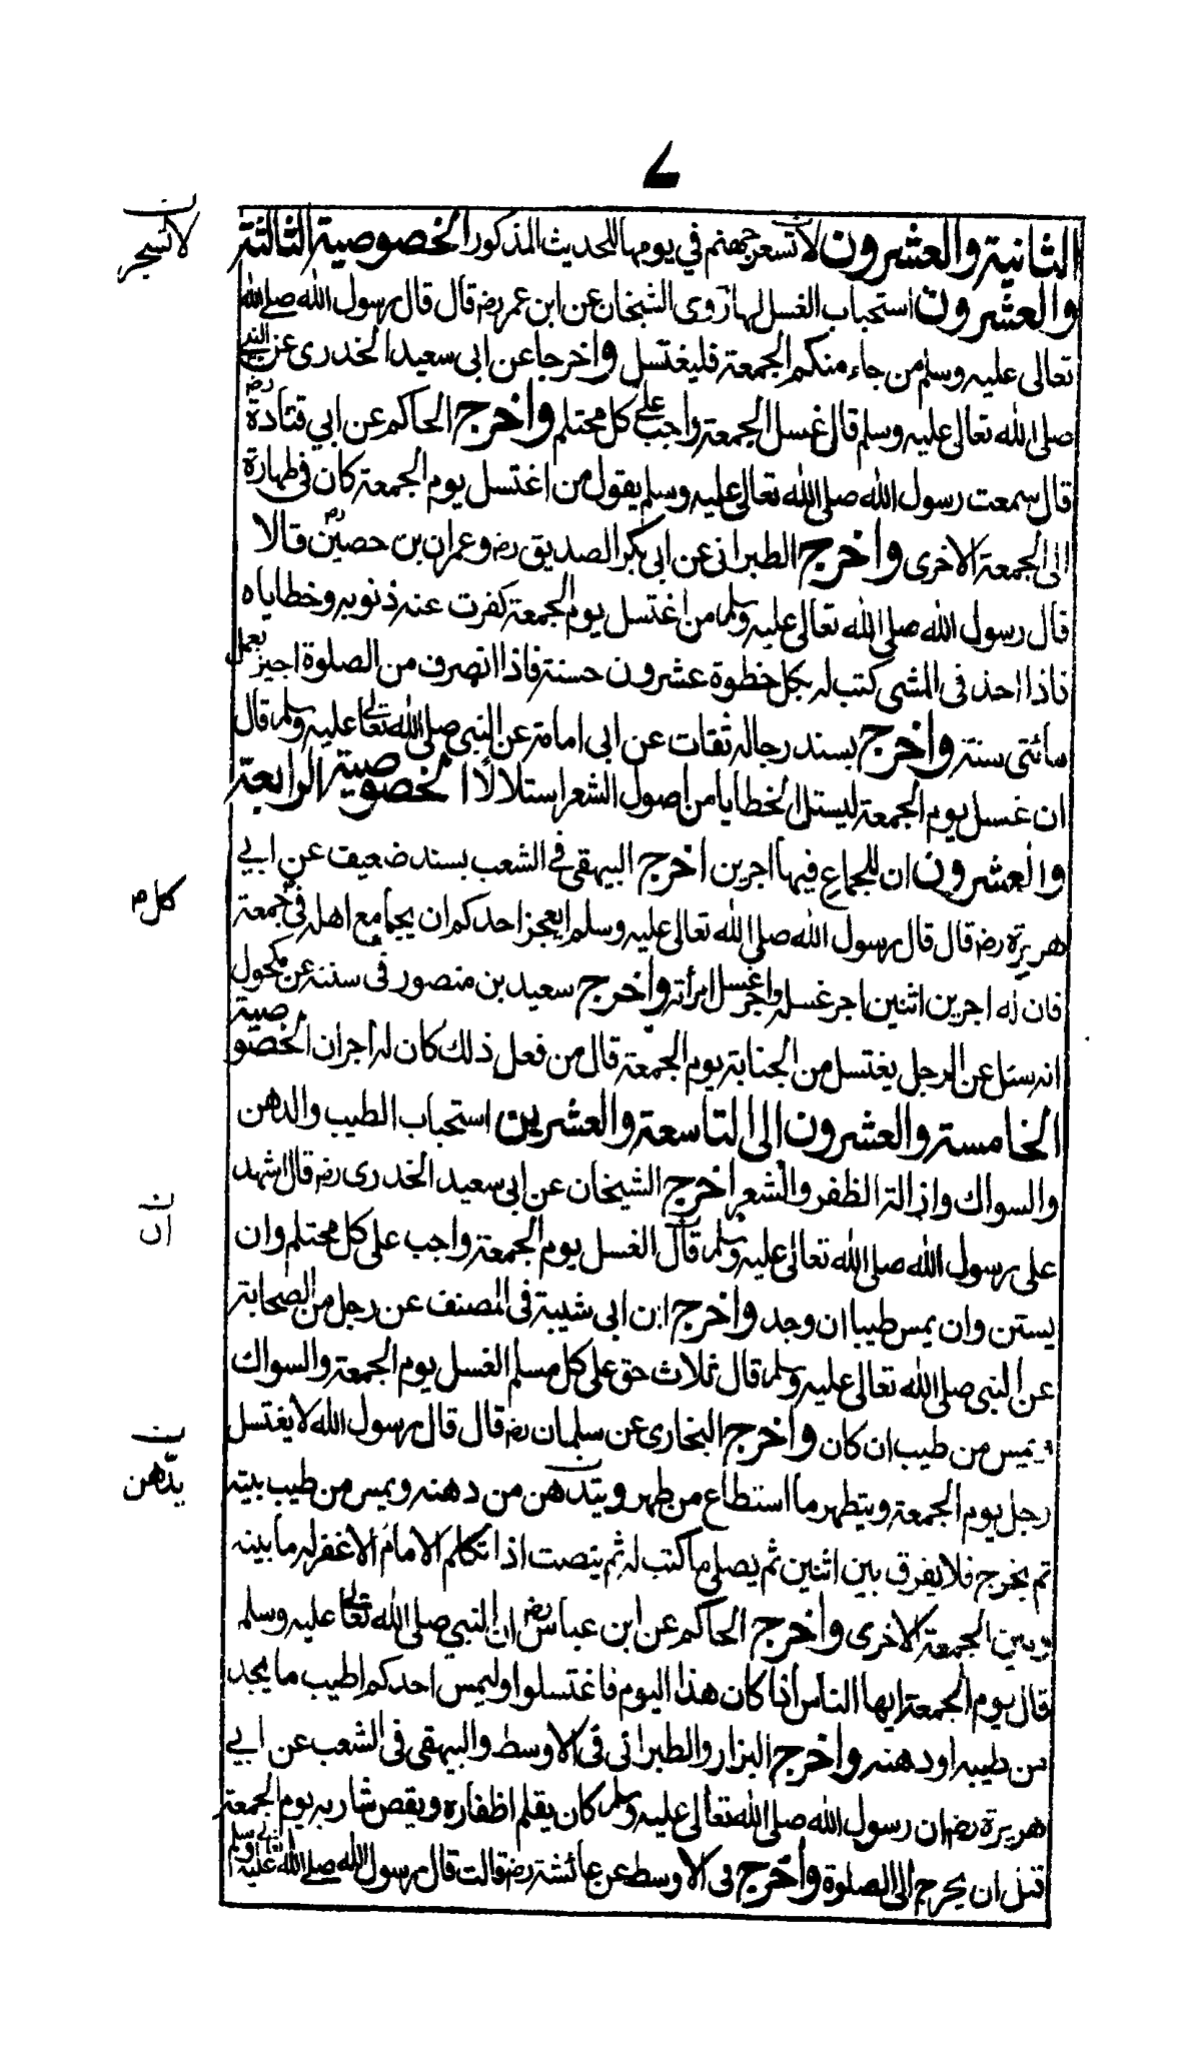 ٧
الثانية والعشرون لا تسعر جهنم في يومها للحديث المذكور الخصوصية الثالثة
ن
لا تسجر
والعشرون استحباب الغسل لها روى الشيخان عن ابن عمر رضہ قال قال رسول الله صلے الله
تعالى عليه وسلم من جاء منكم الجمعة فليغتسل واخرجا عن ابى سعيد الخدرى عن النبے
صلى الله تعالى عليه وسلم قال غسل الجمعة واجب علے كل محتلم واخرج الحاكم عن ابي قتادة رضہ
قال سمعت رسول الله صلى الله تعالى عليه وسلم يقول من اغتسل يوم الجمعة كان فى طهارة
الى الجمعة الاخرى واخرج الطبرانى عن ابى بكر الصديق رضہ وعمران بن حصين رضہ قالا
قال رسول الله صلى الله تعالى عليه وسلم من اغتسل يوم الجمعة كفرت عنه ذنوبه وخطاياه
فاذا اخذ فى المشى كتب له بكل خطوة عشرون حسنة فاذا انصرف من الصلوة اجيز بعمل
مائتى سنة واخرج بسند رجاله ثقات عن ابى امامة عن النبى صلى الله تعالى عليه وسلم قال
ان غسل يوم الجمعة ليستل الخطايا من اصول الشعر استلالا الخصوصية الرابعة
والعشرون ان للجماع فيها اجرين اخرج البيهقى فے الشعب بسند ضعيف عن ابي
هريرة رضہ قال قال رسول الله صلى الله تعالى عليه وسلم ايعجز احدكم ان يجامع اهله فى جمعة
كل م
فان له اجرين اثنين اجر غسله واجر غسل امرأته واخرج سعيد بن منصور فى سننه عن مكحول
انه سئل عن الرجل يغتسل من الجنابة يوم الجمعة قال من فعل ذلك كان له اجران الخصوصية
الخامسة والعشرون الى التاسعة والعشرين استحباب الطيب والدهن
والسواك وازالة الظفر والشعر اخرج الشيخان عن ابى سعيد الخدرى رضہ قال اشهد
ن
ان
على رسول الله صلى الله تعالى عليه وسلم قال الغسل يوم الجمعة واجب على كل محتلم وان
يستن وان يمس طيبا ان وجد واخرج ابن ابى شيبة فى المصنف عن رجل من الصحابة
عن النبى صلى الله تعالى عليه وسلم قال ثلاث حق على كل مسلم الغسل يوم الجمعة والسواك
ويمس من طيب ان كان واخرج البخارى عن سلمان رضہ قال قال رسول الله لا يغتسل
ن
يدّهن
رجل يوم الجمعة ويتطهر ما استطاع من طهر ويتدهن من دهنه ويمس من طيب بيته
ثم يخرج فلا يفرق بين اثنين ثم يصلى ما كتب له ثم ينصت اذا تكلم الامام الا غفر له ما بينه
وبين الجمعة الاخرى واخرج الحاكم عن ابن عباس رضہ ان النبي صلى الله تعالى عليه وسلم
قال يوم الجمعة ايها الناس اذا كان هذا اليوم فاغتسلوا وليمس احدكم اطيب ما يجد
من طيبه او دهنه واخرج البزار والطبرانى فى الاوسط والبيهقى فى الشعب عن ابي
هريرة رضہ ان رسول الله صلى الله تعالى عليه وسلم كان يقلم اظفاره ويقص شاربه يوم الجمعة
قبل ان يخرج الى الصلوة واخرج فى الاوسط عن عائشة رضہ قالت قال رسول الله صلے الله تعالى عليه وسلم